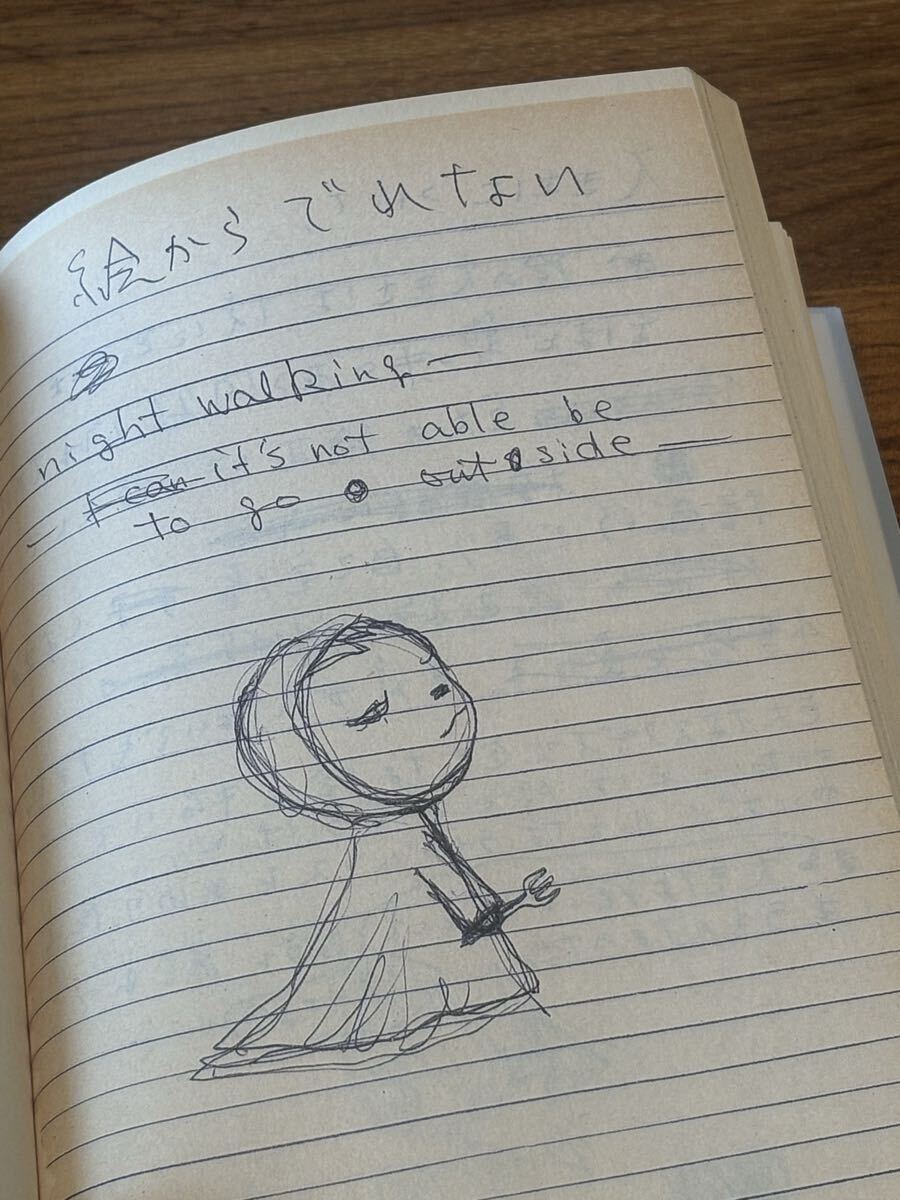 絵からでれない
night walking —
— I can it's not able be
to go outside —